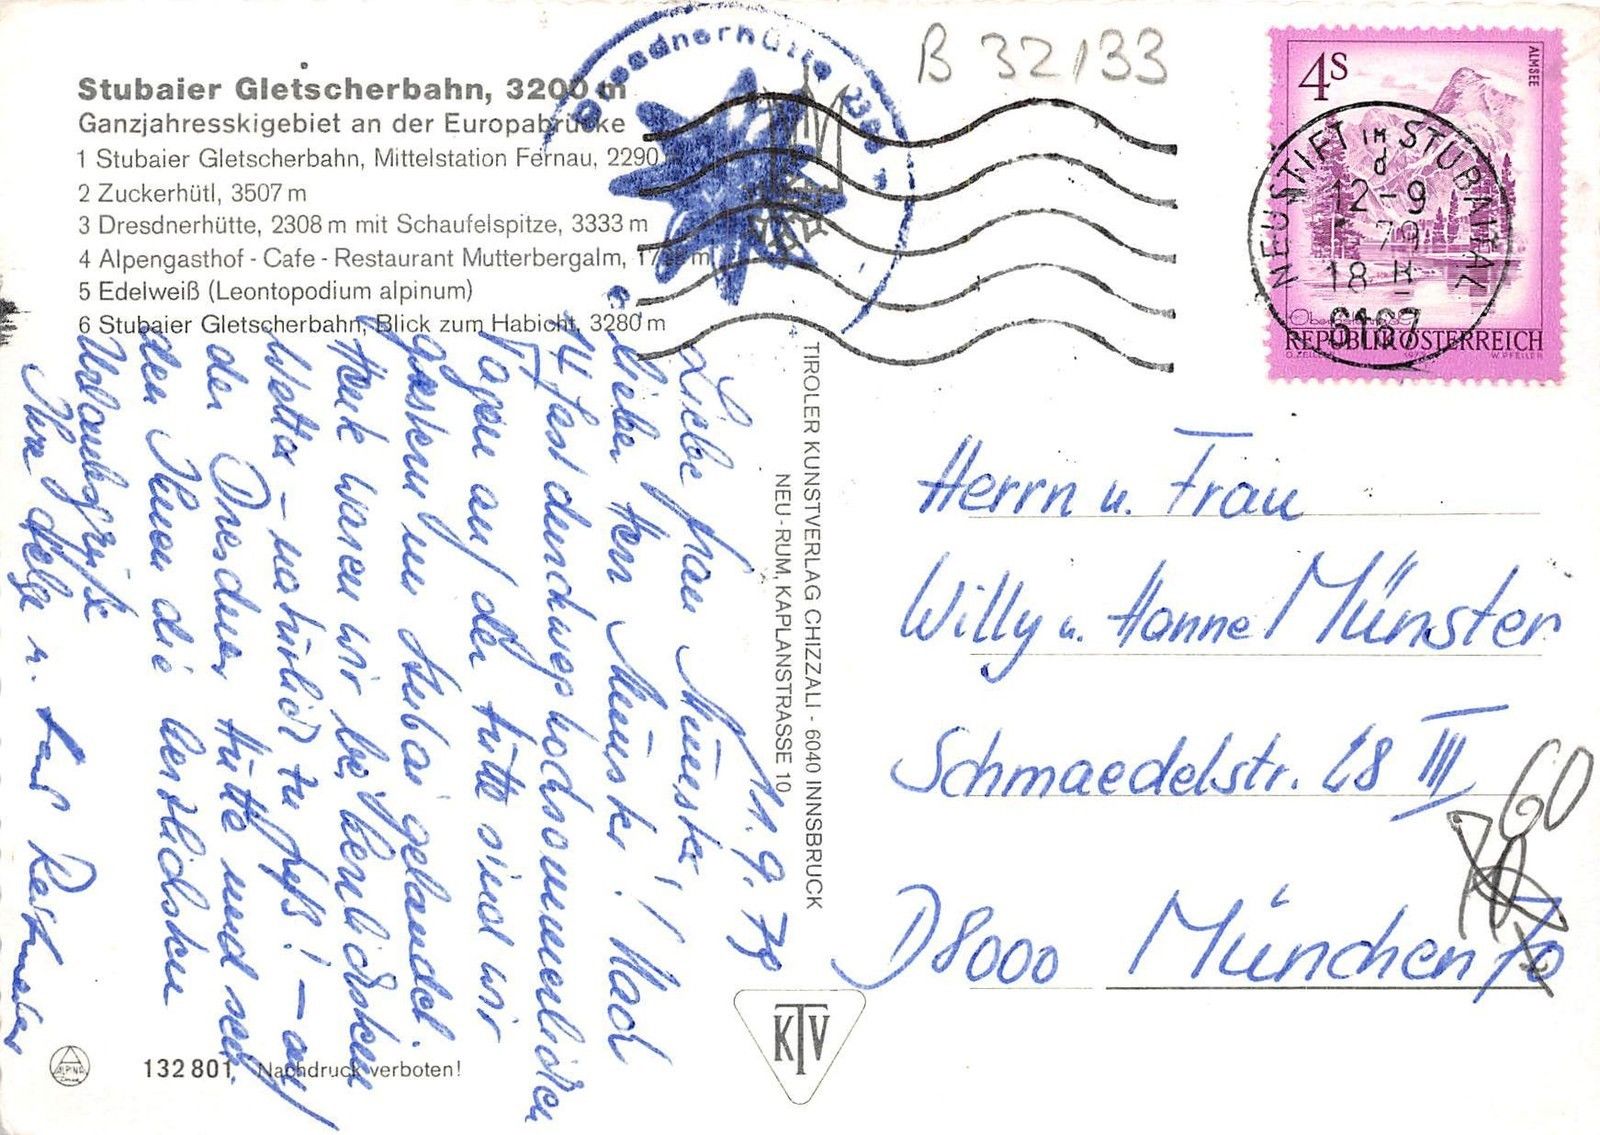 Stubaier Gletscherbahn, 3200 m
Ganzjahresskigebiet an der Europabrücke
1 Stubaier Gletscherbahn, Mittelstation Fernau, 2290
2 Zuckerhütl, 3507 m
3 Dresdnerhütte, 2308 m mit Schaufelspitze, 3333 m
4 Alpengasthof - Cafe - Restaurant Mutterbergalm, m
5 Edelweiß (Leontopodium alpinum)
6 Stubaier Gletscherbahn, Blick zum Habicht, 3280 m
Dresdnerhütte
B 32/33
4S
ALMSEE
REPUBLIK ÖSTERREICH
NEUSTIFT IM STUBAITAL
d
12-9
79
18 H
6167
11.9.79
Liebe Frau Münster,
lieber Herr Münster! Nach
14 fast durchwegs hochsommerlichen
Tagen auf der Hütte sind wir
gestern im Stubai gelandet.
Heute waren wir bei herrlichstem
Wetter – natürlich zu Fuß! – auf
der Dresdner Hütte und sen-
den Ihnen die herzlichsten
Urlaubsgrüße
Ihre Helga u.
TIROLER KUNSTVERLAG CHIZZALI - 6040 INNSBRUCK
NEU-RUM, KAPLANSTRASSE 10
Herrn u. Frau
Willy u. Hanne Münster
Schmaedelstr. 28 III
60
D 8000 München
KTV
ALPINA
132 801 Nachdruck verboten!